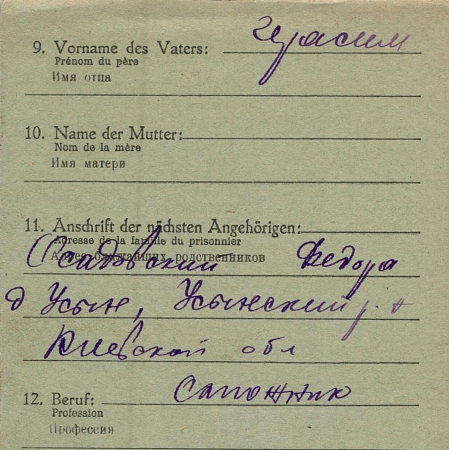 9. Vorname des Vaters: Герасим
Prénom du père
Имя отца
10. Name der Mutter:
Nom de la mère
Имя матери
11. Anschrift der nächsten Angehörigen:
Adresse de la famille du prisonnier
Адрес ближайших родственников
Осадовский Федора
д Усын, Усынский р-н
Киевской обл
12. Beruf: Сапожник
Profession
Профессия